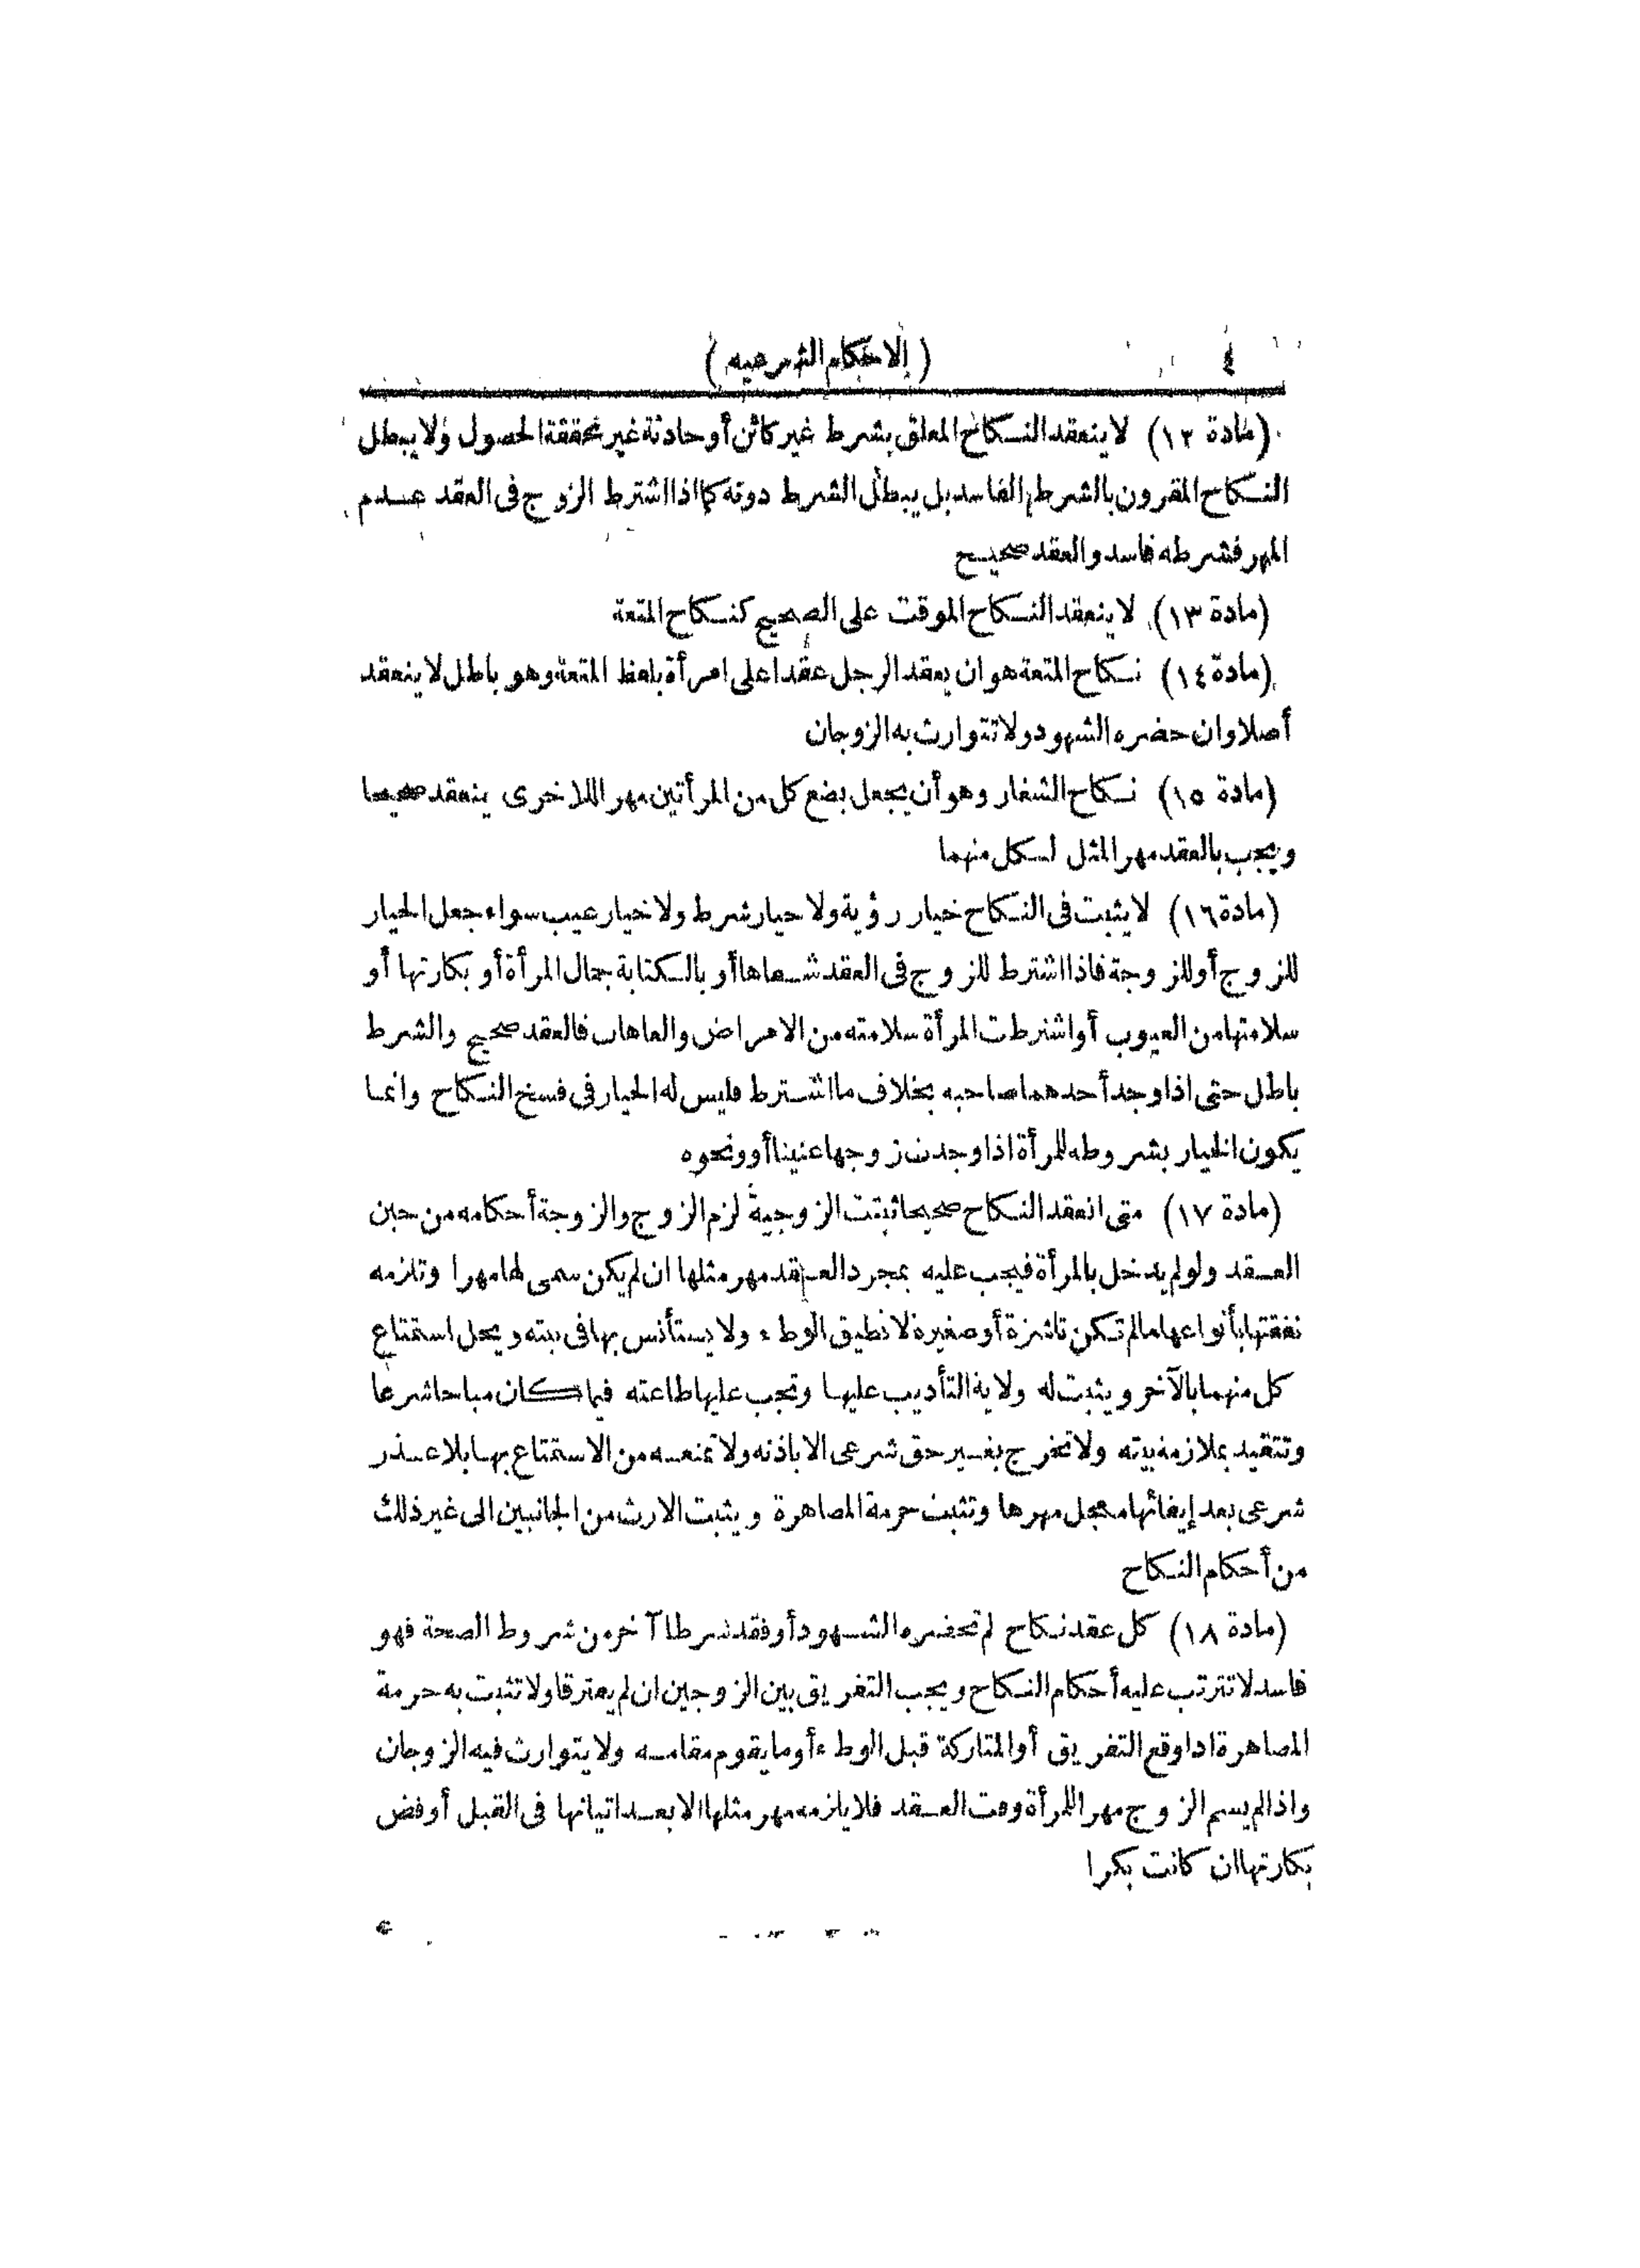 ٤ (الاحكام الشرعيه)
(مادة ١٢) لا ينعقد النكاح المعلق بشرط غير كائن أو حادثة غير محققة الحصول ولا يبطل
النكاح المقرون بالشرط الفاسد بل يبطل الشرط دونه كما اذا اشترط الزوج فى العقد عدم
المهر فشرطه فاسد والعقد صحيح
(مادة ١٣) لا ينعقد النكاح الموقت على الصحيح كنكاح المتعة
(مادة ١٤) نكاح المتعة هو ان يعقد الرجل عقدا على امرأة بلفظ المتعة وهو باطل لا ينعقد
أصلا وان حضره الشهود ولا تتوارث به الزوجان
(مادة ١٥) نكاح الشغار وهو أن يجعل بضع كل من المرأتين مهرا للاخرى ينعقد صحيحا
ويجب بالعقد مهر المثل لكل منهما
(مادة ١٦) لا يثبت فى النكاح خيار رؤية ولا خيار شرط ولا خيار عيب سواء جعل الخيار
للزوج أو للزوجة فاذا اشترط للزوج فى العقد شفاها أو بالكتابة جمال المرأة أو بكارتها أو
سلامتها من العيوب أو اشترطت المرأة سلامته من الامراض والعاهات فالعقد صحيح والشرط
باطل حتى اذا وجد أحدهما صاحبه بخلاف ما اشترط فليس له الخيار فى فسخ النكاح وانما
يكون الخيار بشروطه للمرأة اذا وجدت زوجها عنينا أو ونحوه
(مادة ١٧) متى انعقد النكاح صحيحا ثبتت الزوجية لزم الزوج والزوجة أحكامه من حين
العقد ولو لم يدخل بالمرأة فيجب عليه بمجرد العقد مهر مثلها ان لم يكن سمى لها مهرا وتلزمه
نفقتها بأنواعها ما لم تكن ناشزة أو صغيرة لا تطيق الوطء ولا يستأنس بها فى بيته ويحل استمتاع
كل منهما بالآخر ويثبت له ولاية التأديب عليها وتجب عليها طاعته فيما كان مباحا شرعا
وتتقيد بملازمة بيته ولا تخرج بغير حق شرعى الا باذنه ولا تمنعه من الاستمتاع بها بلا عذر
شرعى بعد إيفائها معجل مهرها وتثبت حرمة المصاهرة ويثبت الارث من الجانبين الى غير ذلك
من أحكام النكاح
(مادة ١٨) كل عقد نكاح لم تحضره الشهود أو فقد شرطا آخر من شروط الصحة فهو
فاسد لا تترتب عليه أحكام النكاح ويجب التفريق بين الزوجين ان لم يفترقا ولا تثبت به حرمة
المصاهرة اذا وقع التفريق أو المتاركة قبل الوطء أو ما يقوم مقامه ولا يتوارث فيه الزوجان
واذا لم يسم الزوج مهرا للمرأة وقت العقد فلا يلزمه مهر مثلها الا بعد اتيانها فى القبل أو فض
بكارتها ان كانت بكرا